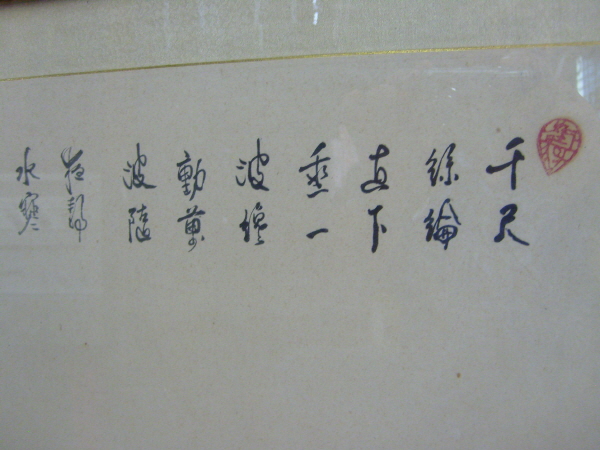 千尺
絲綸
直下
垂一
波纔
動萬
波隨
夜靜
水寒